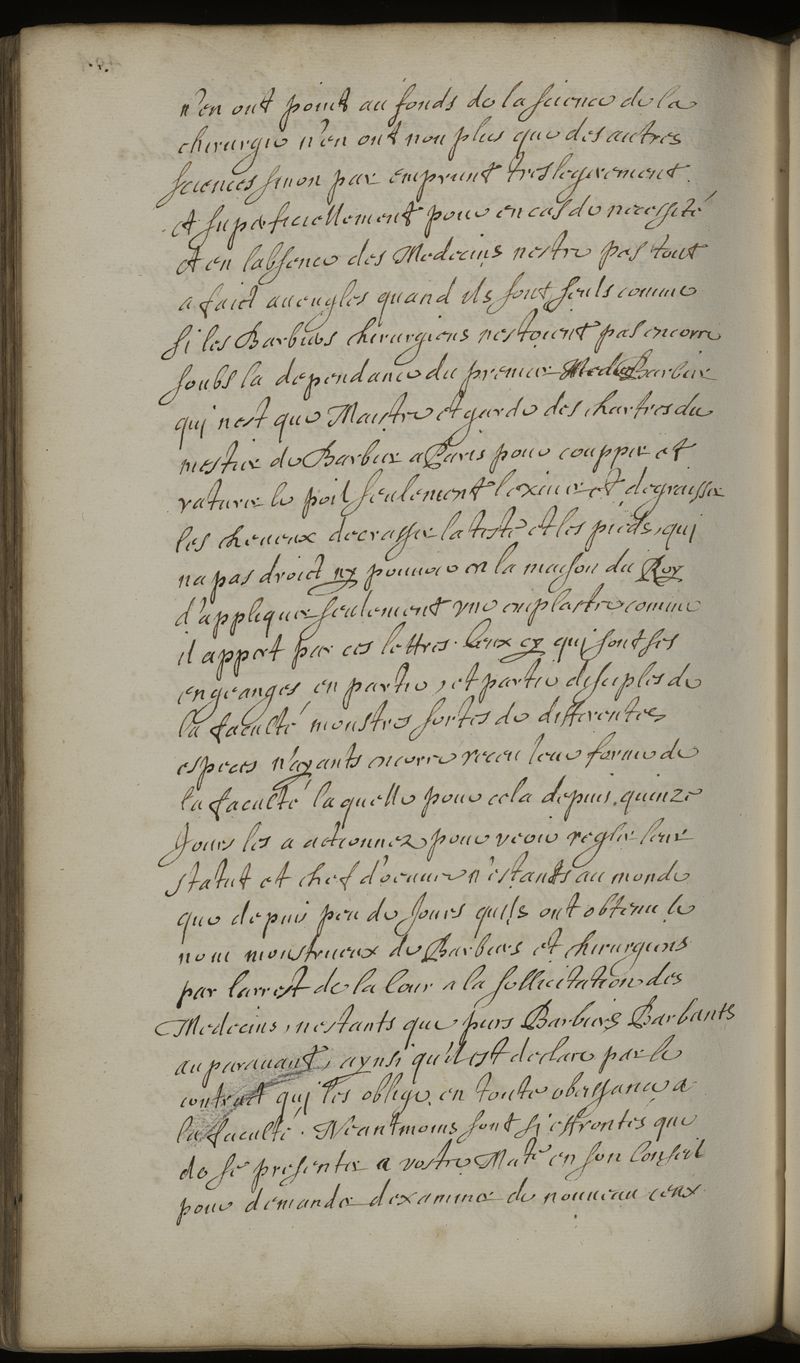 n'en ont point au fonds de la science de la
chirurgie n'en ont non plus que des autres
sciences sinon par emprunt tres legerement
et superficiellement pour en cas de necessité
et en labsence des Medecins nestre pas tout
a faict aueugles quand ils sont seuls comme
si les Barbiers chirurgiens nestoient pas encorre
soubs la dependance du premier Barbier
qui nest que Maistre et garde des chartres du
mestier de Barbier a Paris pour coupper et
raturer le poil seulement lexiuer et degraisser
les cheueux decrasser la teste et les pieds, qui
na pas droict ny pouuoir en la maison du Roy
d'appliquer seulement vne emplastre comme
il appert par ces lettres. Ceux cy qui sont ses
engeances en partie, et partie disciples de
la faculté monstres sortes de differentes
especes n'ayants encorre receu leur forme de
la faculté laquelle pour cela depuis quinze
Jours les a actionnez pour veoir regler leur
statut et chef d'oeuure n'estants au monde
que depuis peu de Jours quils ont obtenu le
nom monstrueux de Barbiers et chirurgiens
par larrest de la Cour a la sollicitation des
Medecins, nestants que purs Barbiers Barbants
auparauant, aynsi qu'il est declare par le
contract qui les oblige en toute obeissance a
la faculté. Neantmoins sont si effrontés que
de se presenter a vostre Maté en son Conseil
pour demander dexaminer de nouueau ceux